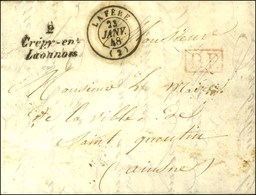 LAFÈRE
23
JANV.
48
(2)
2
Crépy-en-
Laonnois
Monsieur
P.P.
Monsieur le Maire
de la ville de
Saint quentin
(aisne)